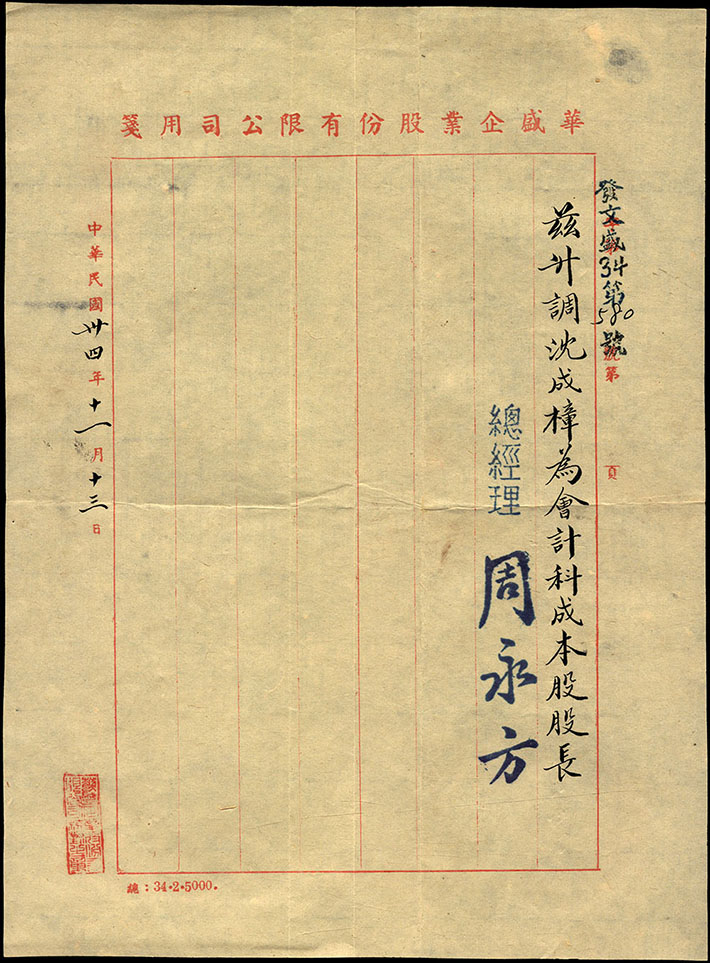 華盛企業股份有限公司用箋
發文盛34第580號
第 頁
茲升調沈成樟為會計科成本股股長
總經理 周永方
中華民國卅四年十一月十三日
總：34•2•5000.